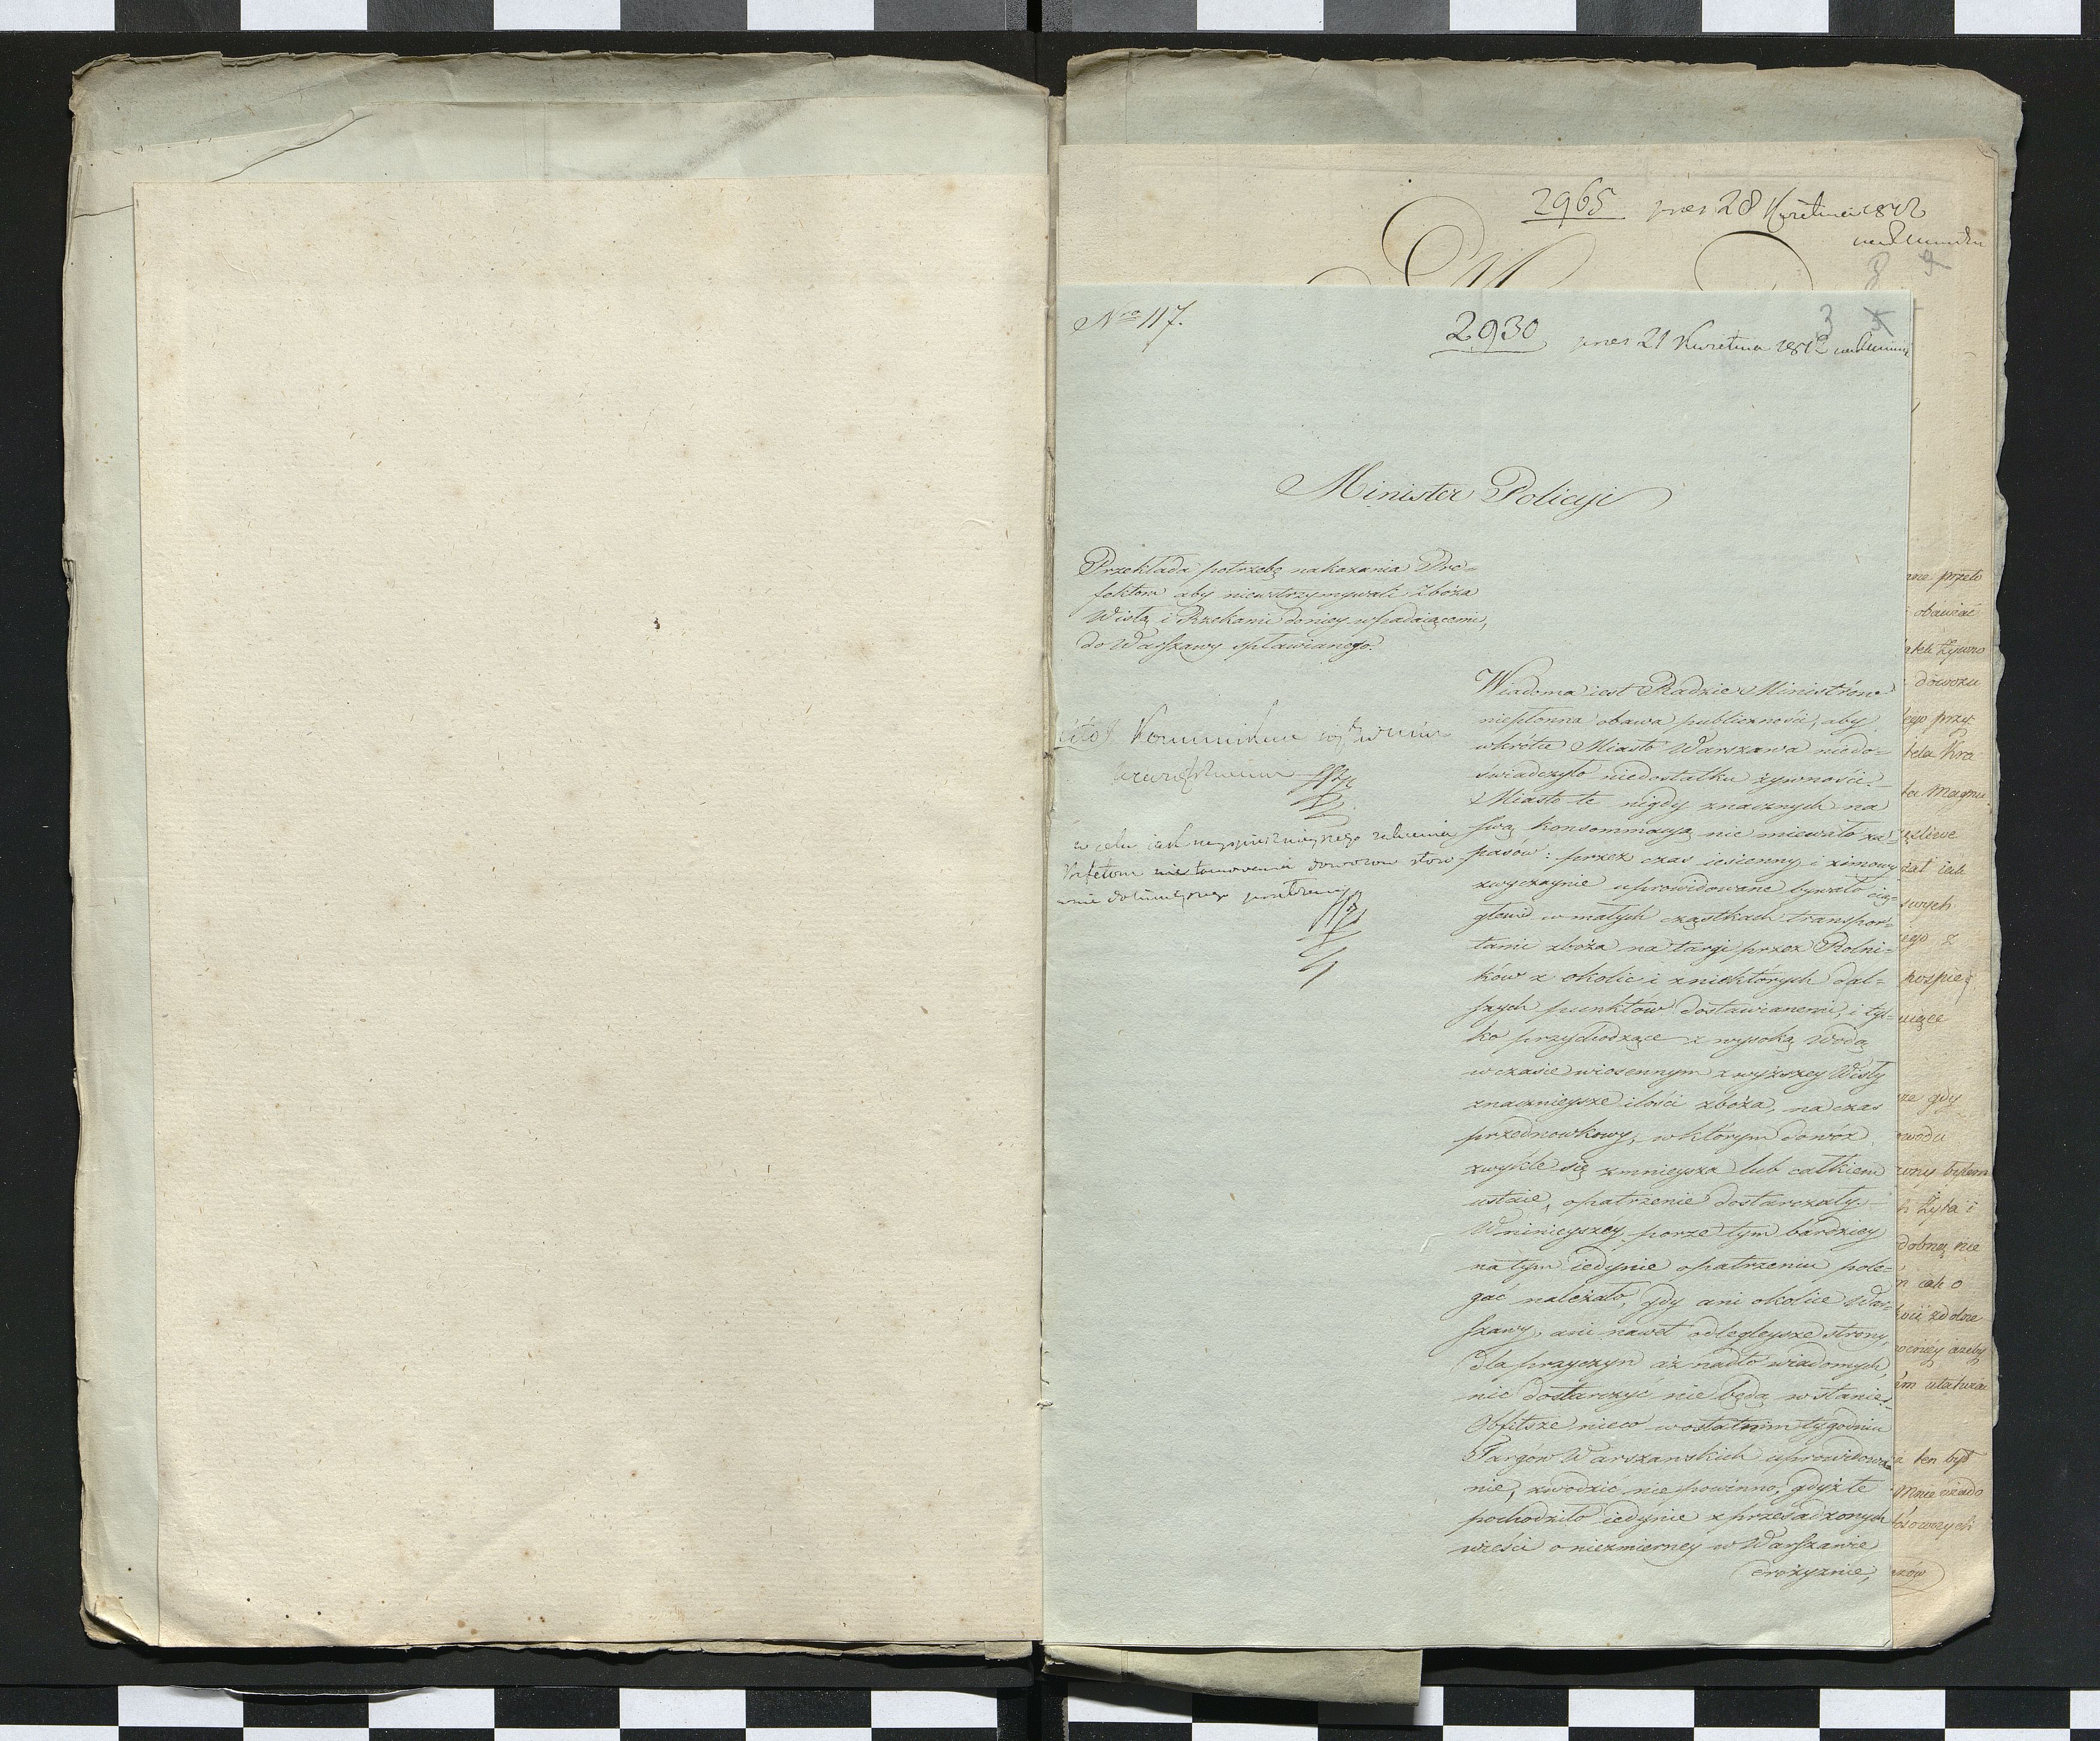 2965 28 Kwietnia 1812
8 9
Nro 117.
2930 21 Kwietnia 1812
3 5
Minister Policyi
Przekłada potrzebę nakazania Pre-
fektom aby niewstrzymywali Zboża
Wisłą i Rzekami do niey wpadaiącemi,
do Warszawy spławianego.
w celu iak nayspiesznieyszego zalecenia
dowozow
Wiadoma iest Radzie Ministrów
niepłonna obawa publiczności, aby
wkrótce Miasto Warszawa niedo-
świadczyło niedostatku żywności.
Miasto te nigdy znacznych na
swą konsommacyą nie miewało za-
pasów: przez czas iesienny i zimowy
zwyczaynie uprowidowane bywało cią-
głemi w małych cząstkach transpor-
tami zboża na targi przez Rolni-
ków z okolic i zniektórych dal-
szych punktów dostawianemi, i tyl-
ko przychodzące z wysoką wodą
w czasie wiosennym z wyższey Wisły
znacznieysze ilości zboża, na czas
przednowkowy, w którym dowóz
zwykle się zmnieysza lub całkiem
ustaie, opatrzenie dostarczały.
W ninieyszey porze tym bardziey
na tym iedynie opatrzeniu pole-
gać należało, gdy ani okolice War-
szawy, ani nawet odlegleysze strony,
dla przyczyn aż nadto wiadomych,
nic dostarczyć nie będą w stanie.
Obfitsze nieco w ostatnim tygodniu
Targów Warszawskich uprowidowa-
nie, zwodzić nie powinno, gdyż te
pochodziło iedynie z przesadzonych
wieści o niezmierney w Warszawie
drożyznie,
przeto
obawiać
dowozu
przy-
gdy
Żyta i
zdolne
ten był